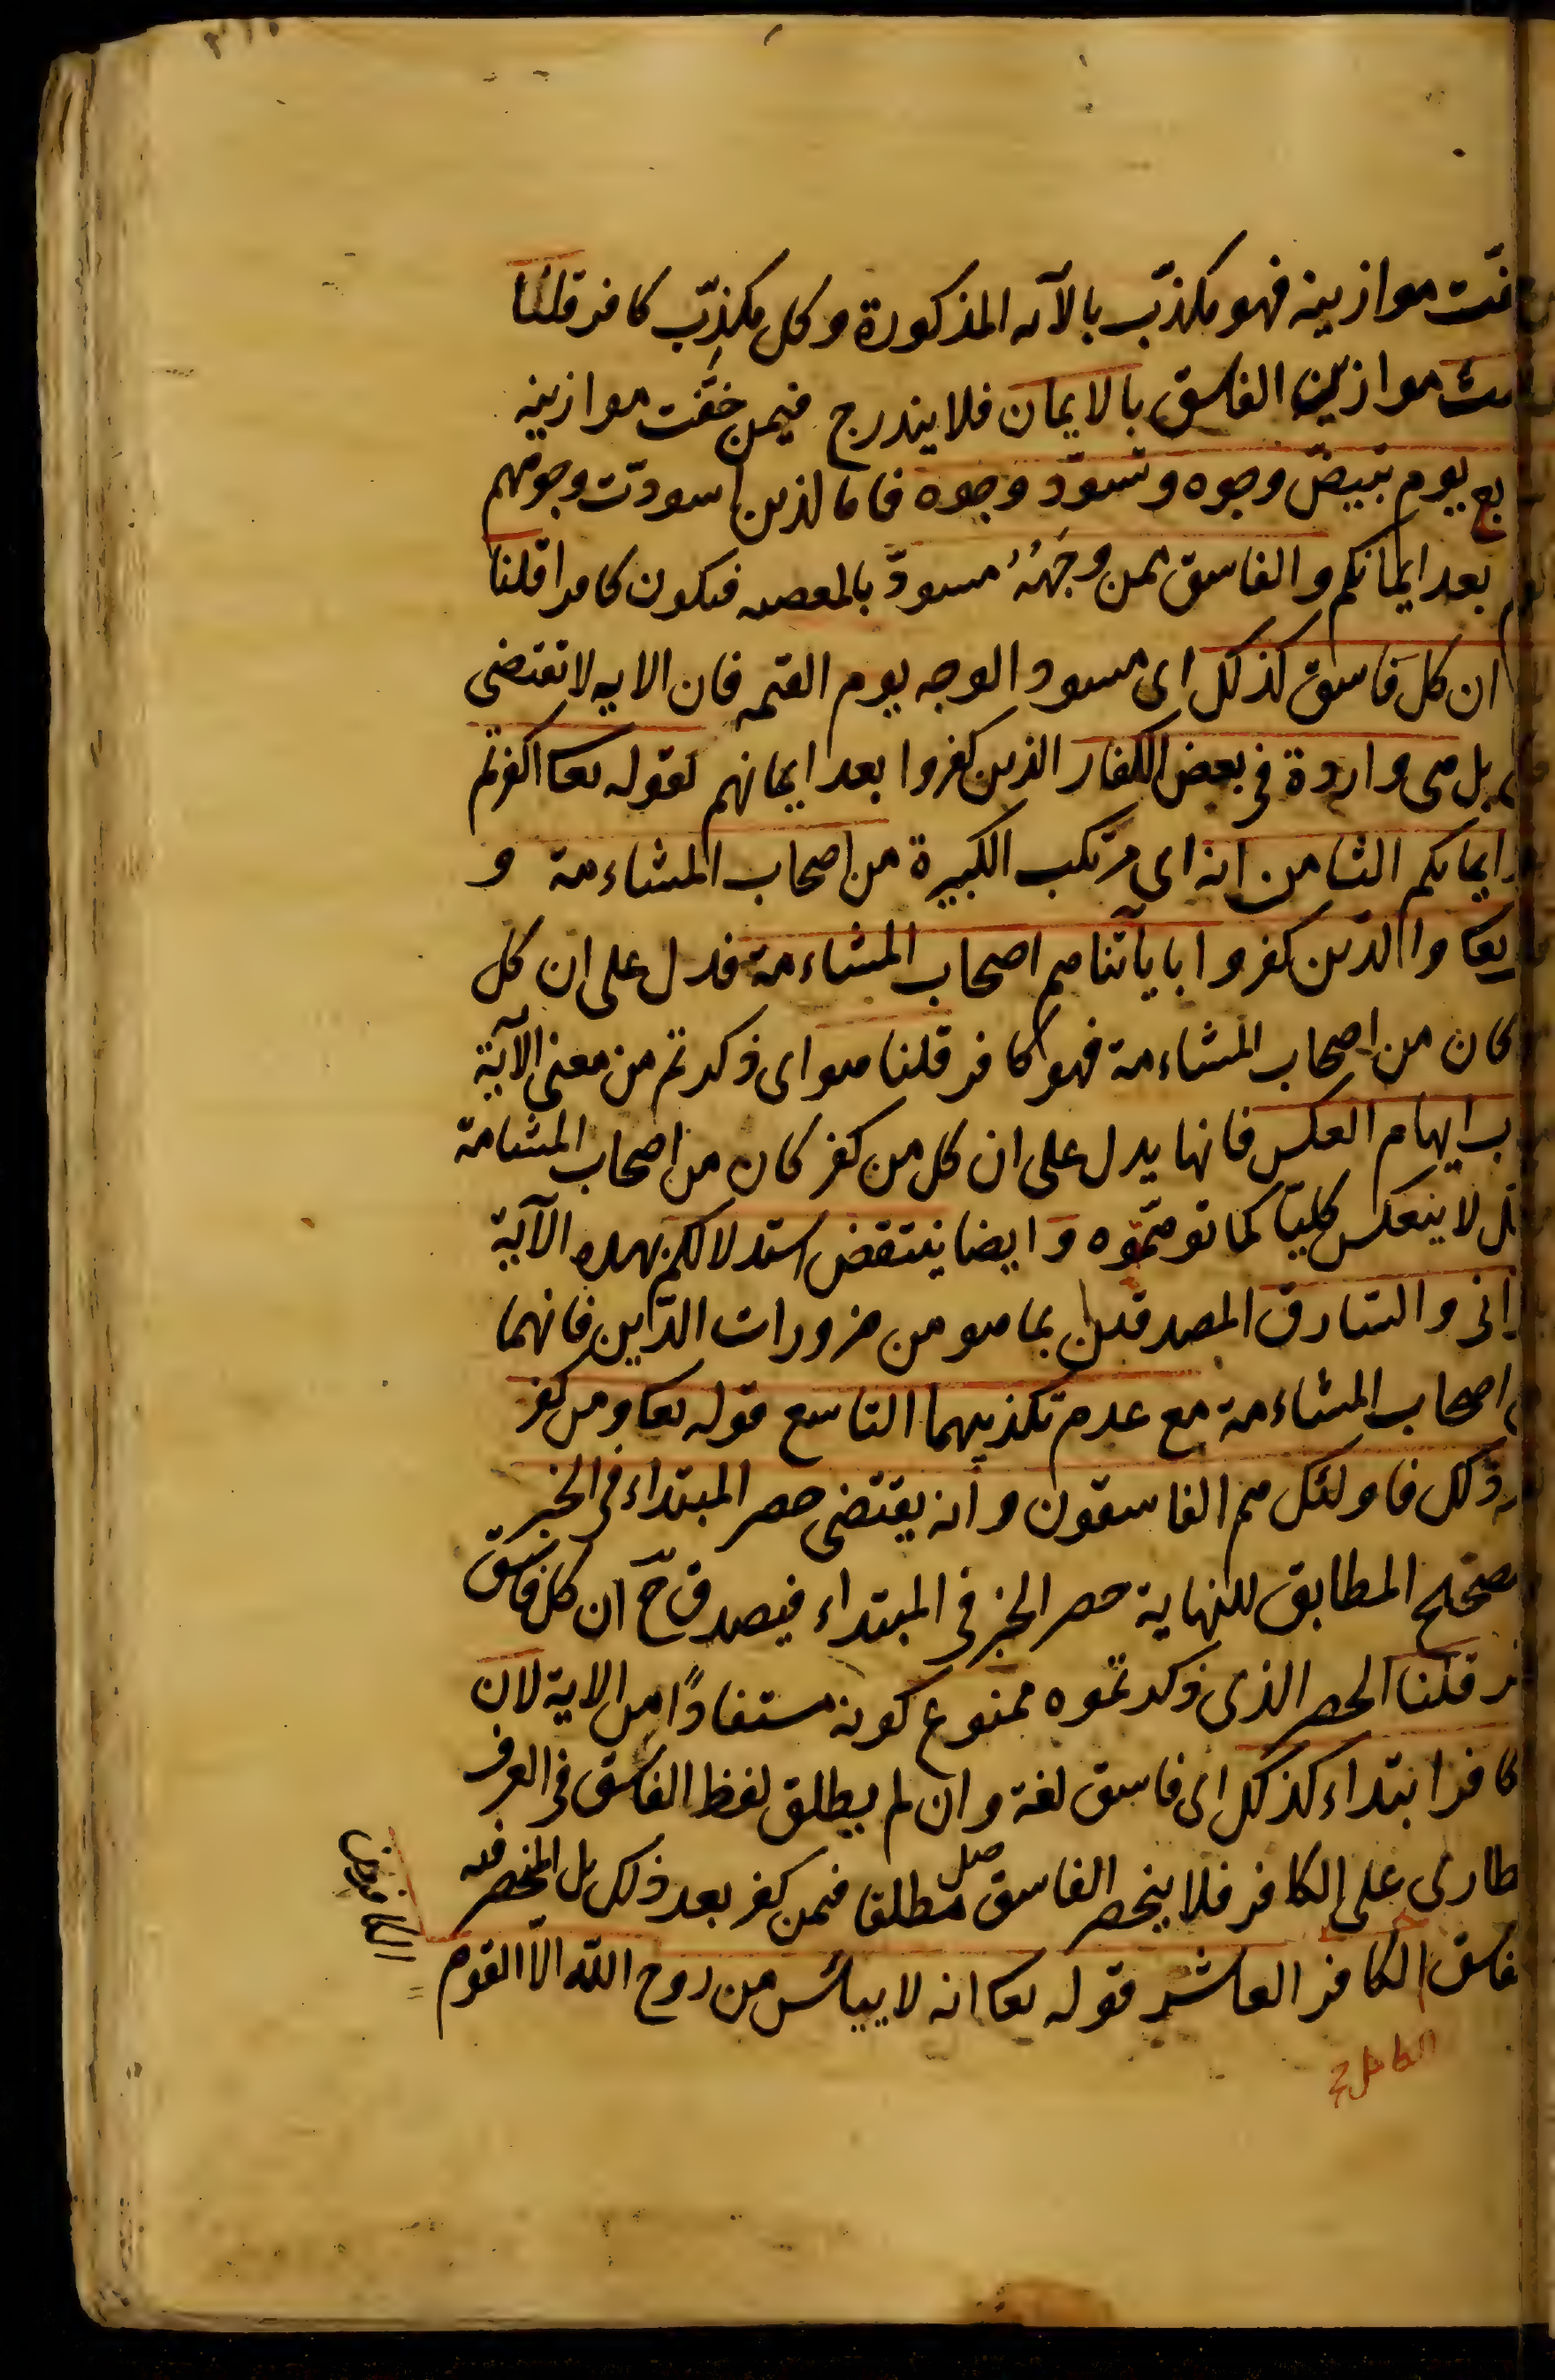 موازينه فهو مكذّب بالآيه المذكورة وكل مكذّب كافر قلنا
موازين الفاسق بالايمان فلا يندرج فيمن خفّت موازينه
يوم تبيضّ وجوه وتسودّ وجوه فاما الذين اسودّت وجوههم
بعد ايمانكم والفاسق ممن وجهه مسودّ بالمعصيه فيكون كافرا قلنا
ان كل فاسق كذلك اى مسود الوجه يوم القيمه فان الايه لا تقتضى
بل هى واردة فى بعض الكفار الذين كفروا بعد ايمانهم لقوله تعا اكفرتم
ايمانكم الثامن انه اى مرتكب الكبيرة من اصحاب المشاءمة و
تعا والذين كفروا باياتنا هم اصحاب المشاءمة فدل على ان كل
كان من اصحاب المشاءمة فهو كافر قلنا هو اى ذكرتم من معنى الآية
ب ايهام العكس فانها يدل على ان كل من كفر كان من اصحاب المشامة
لا ينعكس كليّا كما توهّموه وايضا ينتقض استدلالكم بهذه الآية
انى والسّارق المصدقين بما هو من ضرورات الدّين فانهما
اصحاب المشاءمة مع عدم تكذيبهما التاسع قوله تعا ومن كفر
ذلك فاولئك هم الفاسقون وانه يقتضى حصر المبتداء فى الخبر
المطابق للنهاية حصر الخبر فى المبتداء فيصدق ح ان كل فاسق
قلنا الحصر الذى ذكرتموه ممنوع كونه مستفادًا من الاية لان
كافر ابتداء كذلك اى فاسق لغة وان لم يطلق لفظ الفاسق فى العرف
طارى على الكافر فلا ينحصر الفاسق مطلقا فيمن كفر بعد ذلك بل المنحصر فيه
الكافر العاشر قوله تعا انه لا ييأس من روح الله الّا القوم
الكافرون
الكامل ح